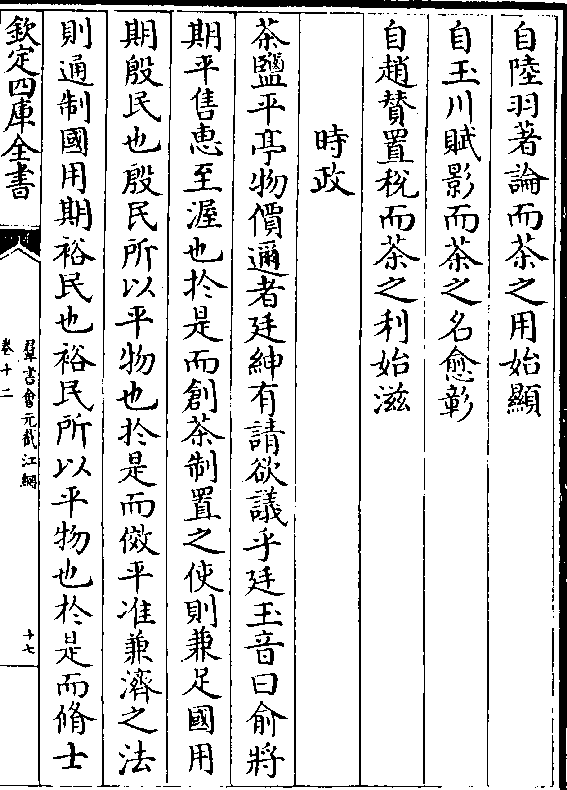 自陸羽著論而茶之用始顯
自玉川賦影而茶之名愈彰
自趙賛置稅而茶之利始滋
時政
茶鹽平亭物價邇者廷紳有請欲議乎廷玉音曰俞將
期平售恵至渥也於是而創茶制置之使則兼足國用
期殷民也殷民所以平物也於是而倣平准兼濟之法
則通制國用期裕民也裕民所以平物也於是而脩士
欽定四庫全書
羣書會元截江網
卷十二
十七